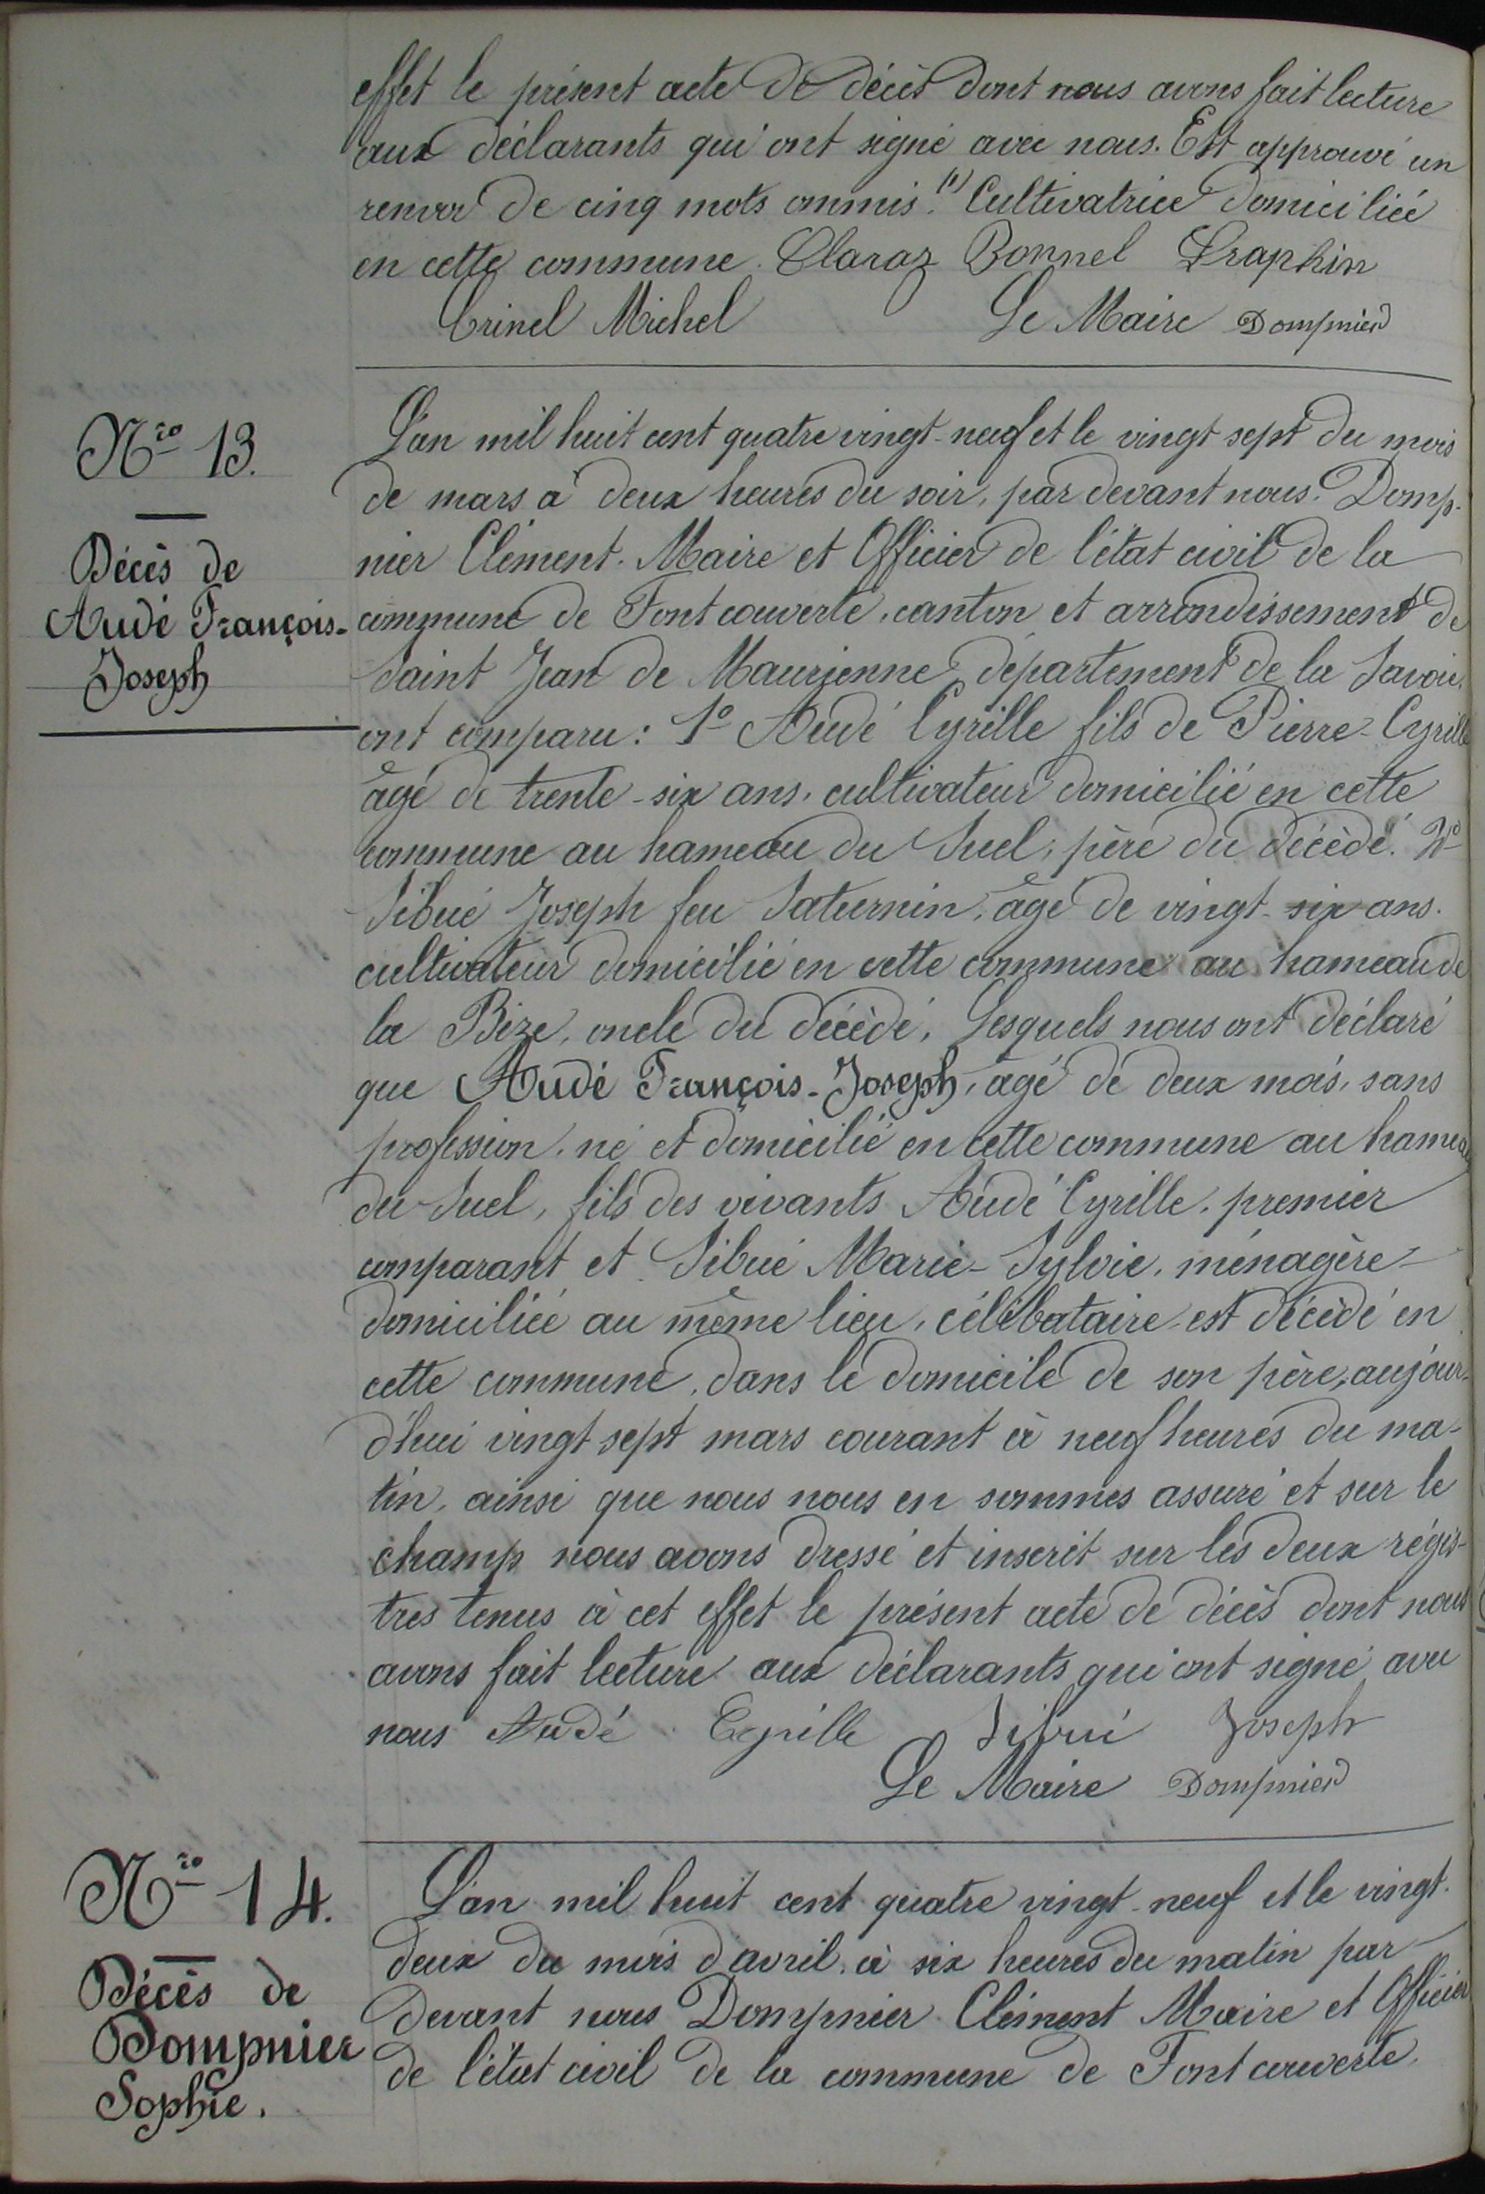 effet le présent acte de décès dont nous avons fait lecture
aux déclarants qui ont signé avec nous. Est approuvé un
renvoi de cinq mots ommis. (1) Cultivatrice domiciliée
en cette commune. Claraz Bonnel Séraphin
Crinel Michel Le Maire Dompnier
Nro 13.
Décès de
Audé François-
Joseph
L'an mil huit cent quatre vingt-neuf et le vingt sept du mois
de mars à deux heures du soir, par devant nous. Domp-
nier Clément. Maire et Officier de l'état civil de la
commune de Fontcouverte, canton et arrondissement de
Saint Jean de Maurienne, département de la Savoie,
ont comparu: 1o Audé Cyrille fils de Pierre-Cyrille
âgé de trente-six ans, cultivateur domicilié en cette
commune au hameau du Suel, père du décèdé. 2o
Sibué Joseph feu Saturnin, âgé de vingt-six ans.
cultivateur domicilié en cette commune au hameau de
la Bize, oncle du décèdé. Lesquels nous ont déclaré
que Audé François-Joseph, âgé de deux mois, sans
profession, né et domicilié en cette commune au hameau
du Suel, fils des vivants Audé Cyrille, premier
comparant et Sibué Marie-Sylvie, ménagère
domiciliée au même lieu, célibataire est décèdé en
cette commune, dans le domicile de son père, aujour-
d'hui vingt sept mars courant à neuf heures du ma-
tin, ainsi que nous nous en sommes assuré et sur le
champ nous avons dressé et inscrit sur les deux régis-
tres tenus à cet effet le présent acte de décès dont nous
avons fait lecture aux déclarants qui ont signé avec
nous Audé Cyrille Sibué Joseph
Le Maire Dompnier
Nro 14.
Décès de
Dompnier
Sophie.
L'an mil huit cent quatre vingt-neuf et le vingt-
deux du mois d'avril à six heures du matin par
devant nous Dompnier Clément Maire et Officier
de l'état civil de la commune de Fontcouverte,